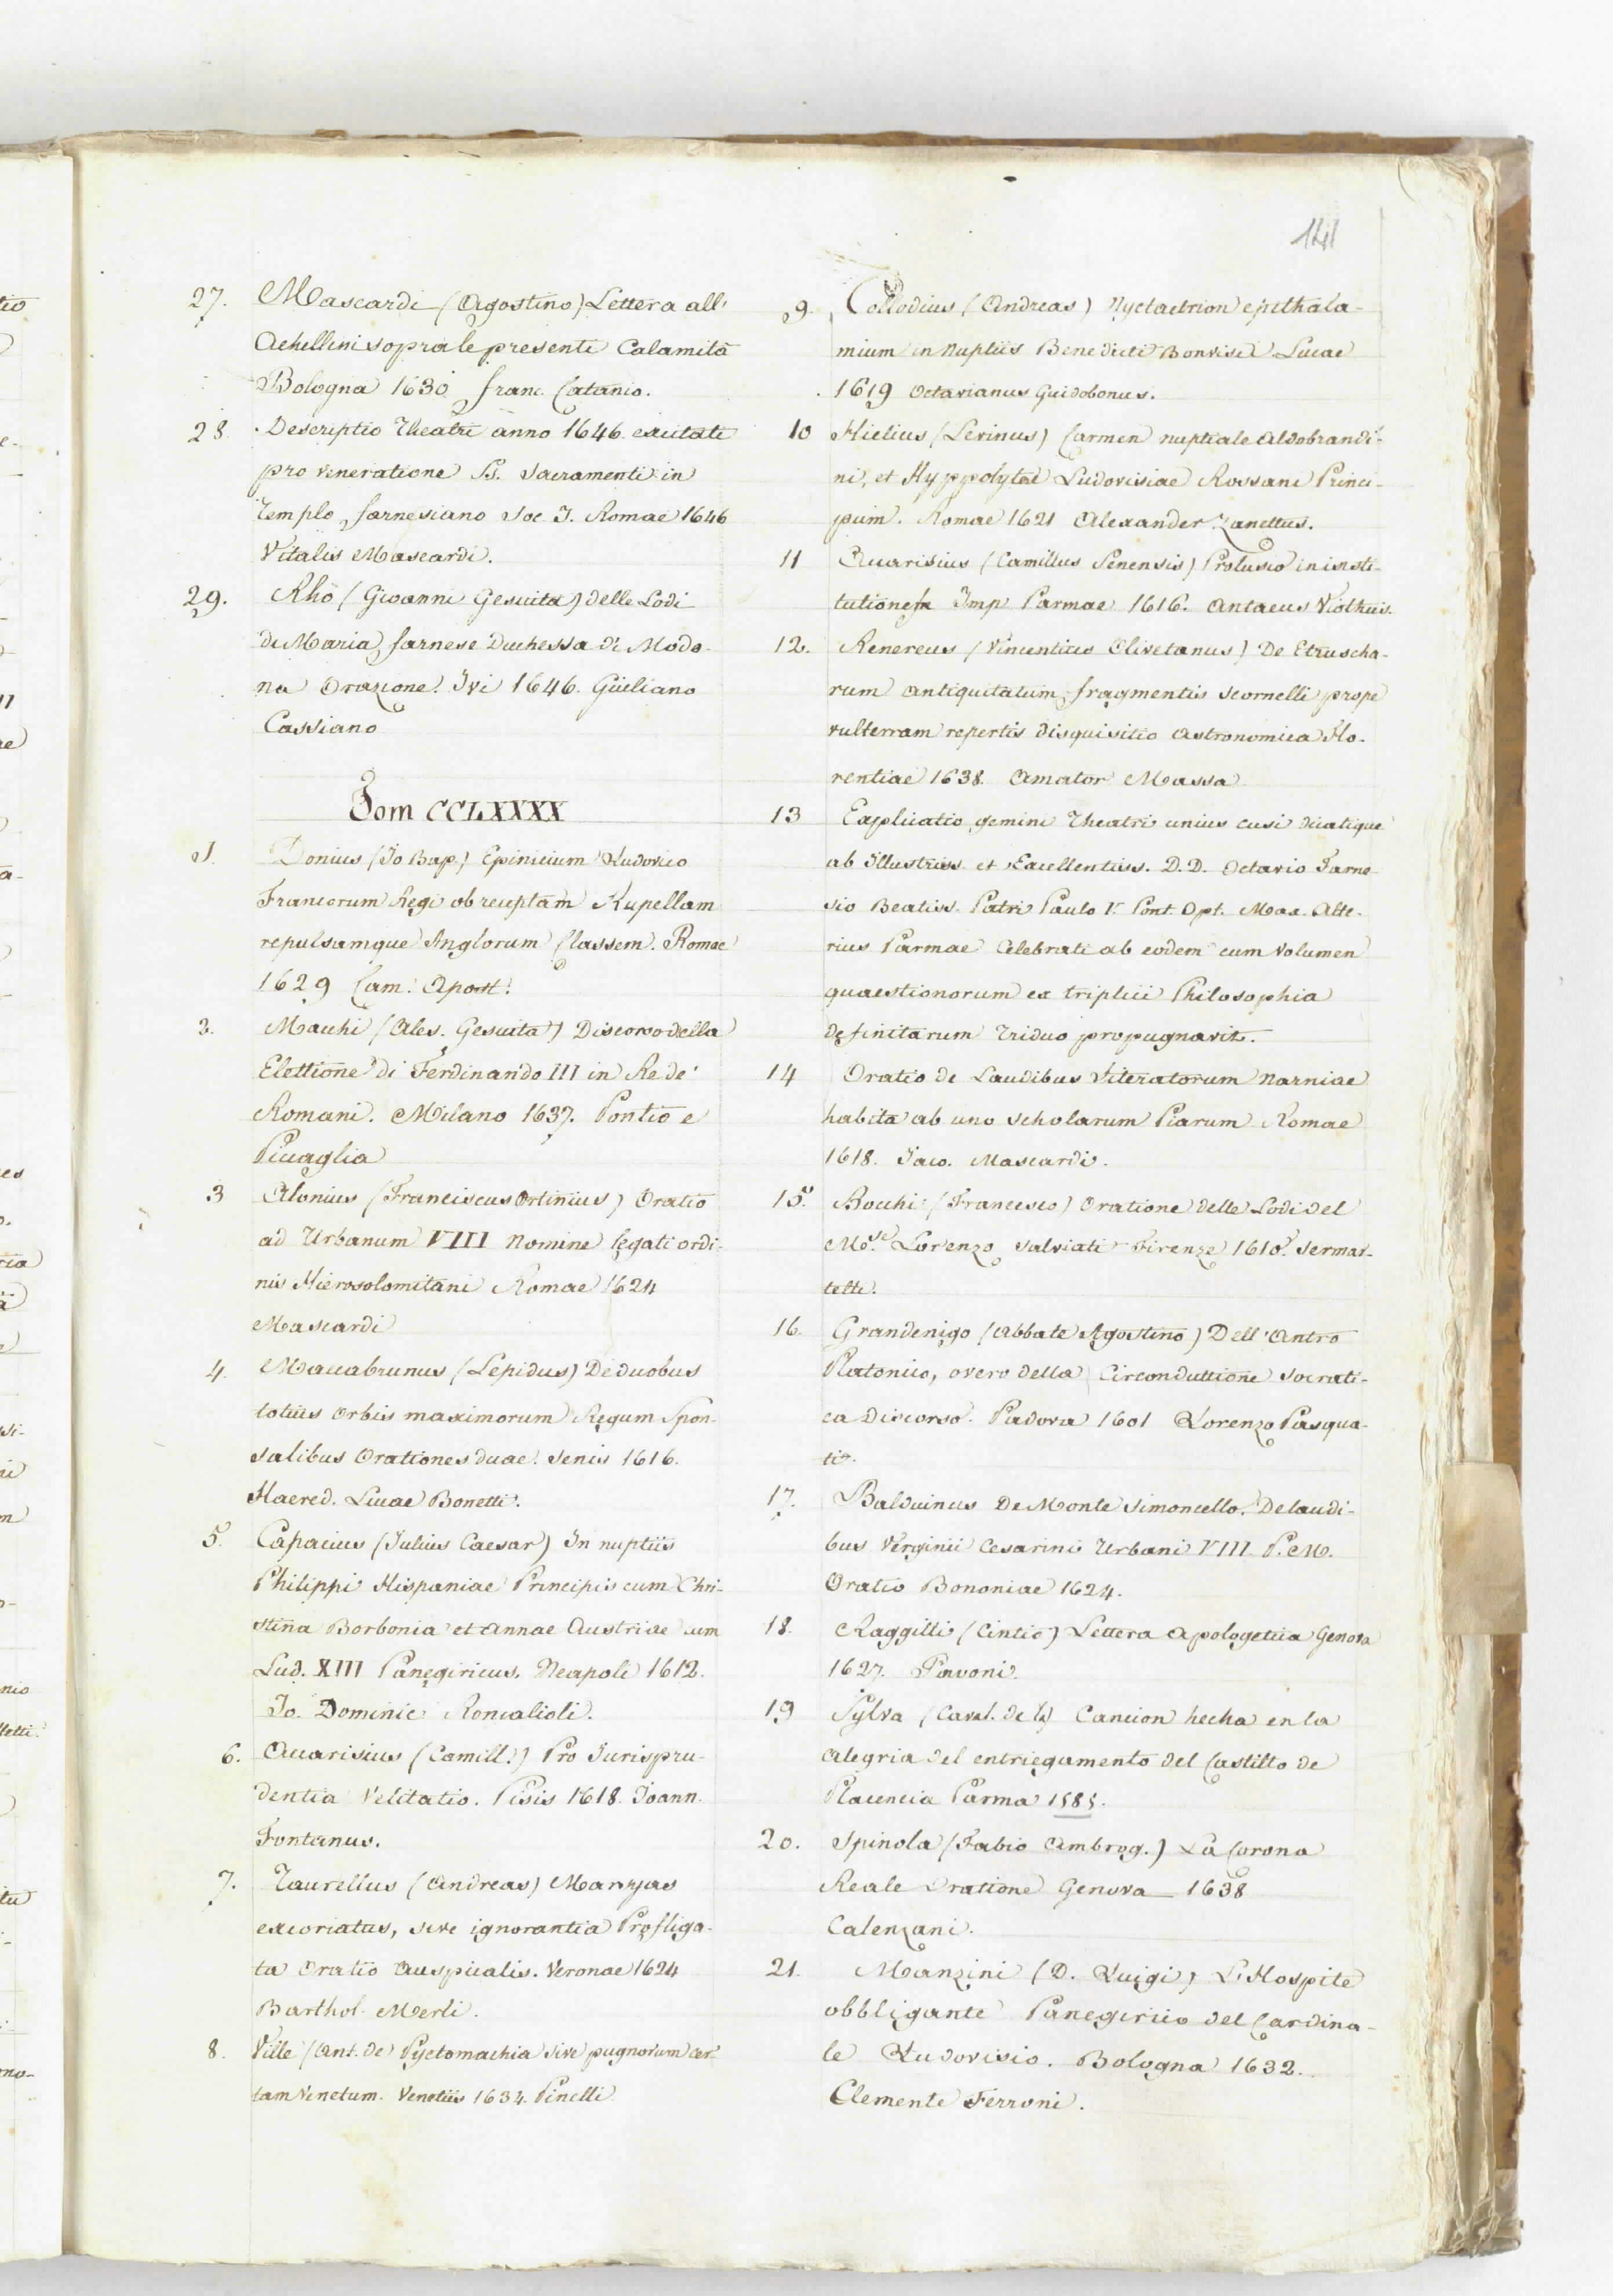 141
27. Mascardi (Agostino) Lettera all'
Achellini sopra le presenti Calamità
Bologna 1630 Franc. Catanio.
28. Descriptio Theatri anno 1646 excitati
pro veneratione SS. Sacramenti in
Templo Farnesiano Soc. I. Romae 1646
Vitalis Mascardi.
29. Rhò (Gioanni Gesuita) delle Lodi
di Maria Farnese Duchessa di Modo-
na Orazione. Ivi 1646. Giuliano
Cassiano
Tom CCLXXXX
1. Donius (Io Bap.) Epinicium Ludovico
Francorum Regi ob receptam Rupellam
repulsamque Anglorum Classem. Romae
1629 Cam. Apost.
2. Macchi (Ales. Gesuita) Discorso della
Elettione di Ferdinando III in Re de'
Romani. Milano 1637. Pontio e
Piccaglia
3 Alonius (Franciscus Ortinius) Oratio
ad Urbanum VIII nomine legati ordi-
nis Hierosolomitani Romae 1624
Mascardi
4. Maccabrunus (Lepidus) De duobus
totius Orbis maximorum Regum Spon-
salibus Orationes duae. Senis 1616.
Haered. Lucae Bonetti.
5. Capacius (Julius Caesar) In nuptiis
Philippi Hispaniae Principis cum Chri-
stina Borbonia et Annae Austriae cum
Lud. XIII Panegiricus. Neapoli 1612.
Io. Dominic Roncalioli.
6. Accarisius (Camill.) Pro Jurispru-
dentia Velitatio. Pisis 1618. Joann.
Fontanus.
7. Taurellus (Andreas) Marsyas
excoriatus, sive ignorantia Profliga-
ta Oratio Auspicalis. Veronae 1624
Barthol. Merli.
8. Ville (Ant. de) Pyctomachia sive pugnorum cer-
tam Venetum. Venetiis 1634. Pinelli
9. Collodius (Andreas) Nyctaetrion epithala-
mium in Nuptiis Benedicti Bonvisi Lucae
1619 Octavianus Guidobonus.
10 Hielius (Levinus) Carmen nuptiale Aldobrandi-
ni, et Hyppolytae Ludovisiae Rossani Princi-
pum. Romae 1621 Alexander Zanettus.
11 Accarisius (Camillus Senensis) Prolusio in insti-
tutiones Imp Parmae 1616. Antaeus Viothus.
12. Renereus (Vincentius Olivetanus) De Etruscha-
rum antiquitatum fragmentis scornelli prope
vulterram repertis Disquisitio Astronomica Flo-
rentiae 1638. Amator Massa
13 Explicatio gemini Theatri unius cusi dicatique
ab Illustriss. et Excellentiss. D.D. Octavio Farne-
sio Beatiss. Patri Paulo V. Pont. Opt. Max. Alte-
rius Parmae Celebrati ab eodem cum Volumen
quaestionorum ex triplici Philosophia
definitarum Triduo propugnavit.
14 Oratio de Laudibus Literatorum Narniae
habita ab uno Scholarum Piarum Romae
1618. Jaco. Mascardi.
15. Bocchi (Francesco) Oratione delle Lodi del
Lorenzo Salviati Firenze 1610. Sermar-
telli.
16. Grandenigo (Abbate Agostino) Dell'Antro
Platonico, overo della Circonduttione Socrati-
ca Discorso. Padova 1601 Lorenzo Pasqua-
ti.
17. Balduinus De Monte Simoncello. De laudi-
bus Verginii Cesarini Urbani VIII. P.M.
Oratio Bononiae 1624.
18. Raggilli (Cintio) Lettera Apologetica Genova
1627. Pavoni.
19 Sylva (Caval. de la) Cancion hecha en la
Alegria del entriegamento del Castillo de
Placencia Parma 1585.
20. Spinola (Fabio Ambrog.) La Corona
Reale Oratione Genova 1638
Calenzani.
21. Manzini (D. Luigi) L'Hospite
obbligante Panegirico del Cardina-
le Ludovisio. Bologna 1632.
Clemente Ferroni.